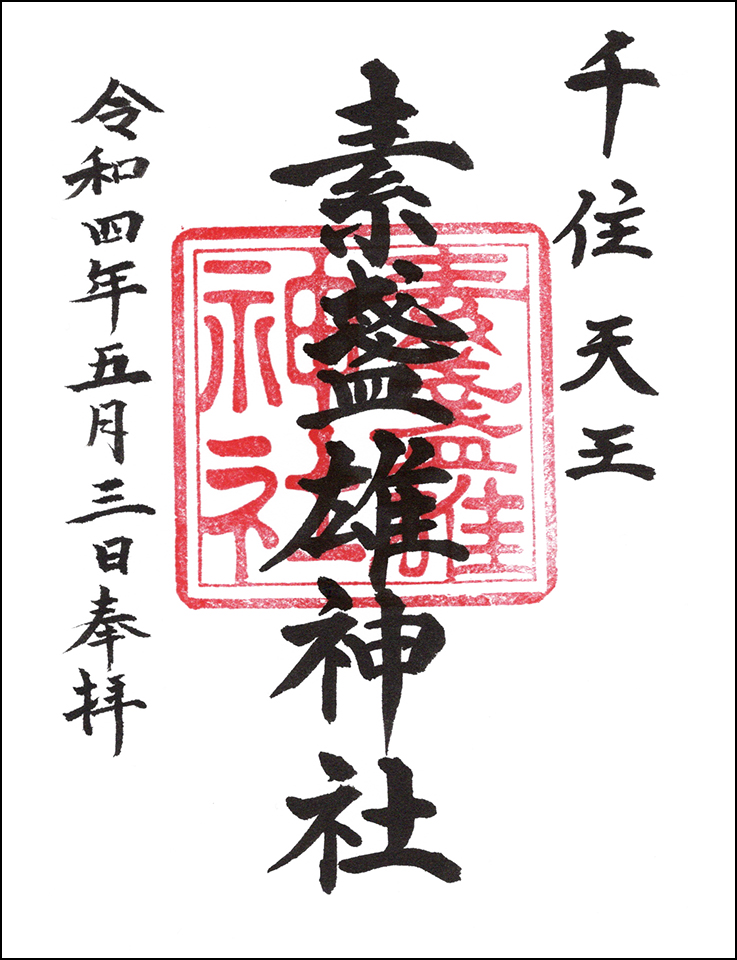 千住天王
素盞雄神社
令和四年五月三日奉拝
素盞雄
神社